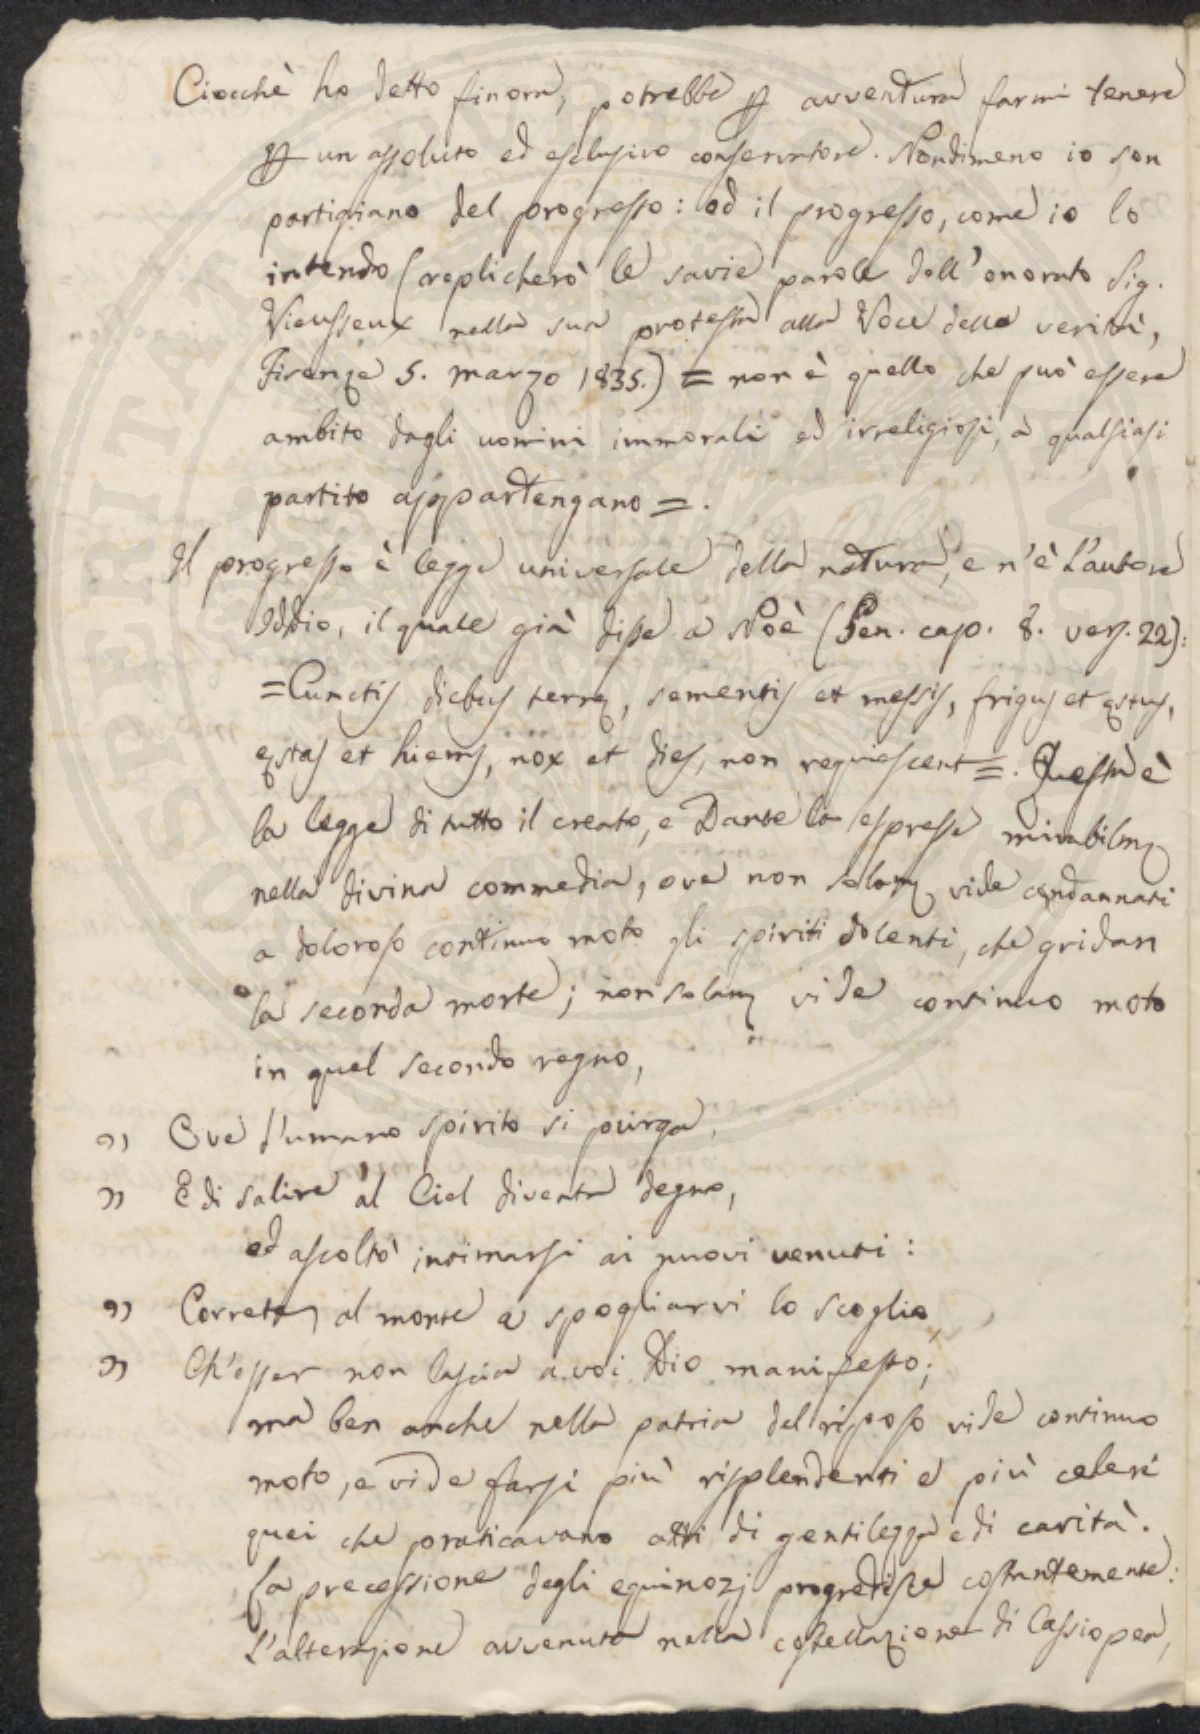 Ciocchè ho detto finora, potrebbe p avventura farmi tenere
p un assoluto ed esclusivo conservatore. Nondimeno io son
partigiano del progresso: ed il progresso, come io lo
intendo (replicherò le savie parole dell'onorato Sig.
Vieusseux nella sua protesta alla Voce della verità,
Firenze 5. marzo 1835.) = non è quello che può essere
ambito dagli uomini immorali ed irreligiosi, a qualsiasi
partito appartengano =.
Il progresso è legge universale della natura, e n'è l'autore
Iddio, il quale già disse a Noè (Gen. cap. 8. vers. 22):
= Cunctis diebus terrę, sementis et messis, frigus et ęstus,
ęstas et hiems, nox et dies, non requiescent =. Questa è
la legge di tutto il creato, e Dante la espresse mirabilmᵉ
nella divina commedia, ove non solamᵉ vide condannati
a doloroso continuo moto gli spiriti dolenti, che gridan
la seconda morte; non solamᵉ vide continuo moto
in quel secondo regno,
" Ove l'umano spirito si purga,
" E di salire al Ciel diventa degno,
ed ascoltò intimarsi ai nuovi venuti:
" Correte al monte a spogliarvi lo scoglio,
" Ch'esser non lascia a voi Dio manifesto;
ma ben anche nella patria del riposo vide continuo
moto, e vide farsi più risplendenti e più celeri
quei che praticavano atti di gentilezza e di carità.
La precessione degli equinozj progredisce costantemente:
L'alterazione avvenuta nella costellazione di Cassiopea,
OSPERITATI PVBLICAE